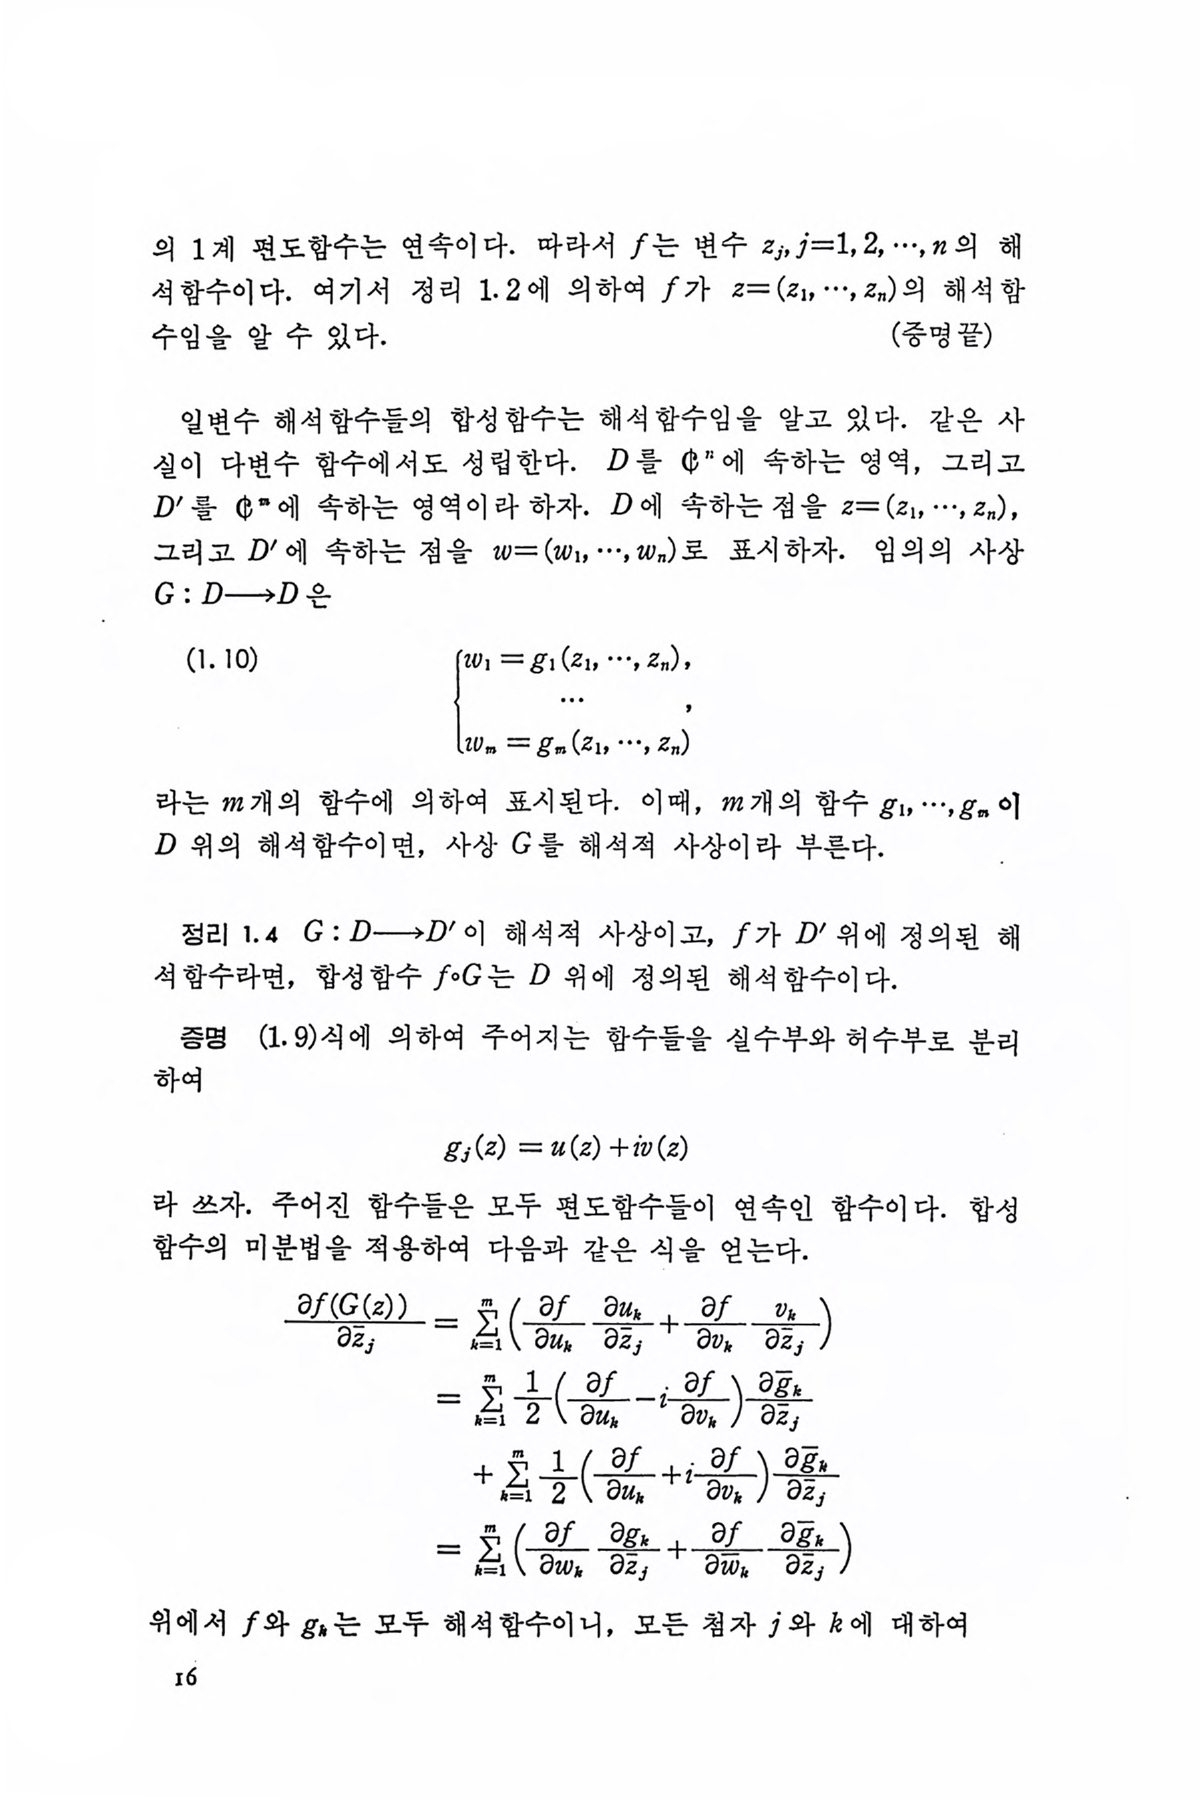 의 1계 편도함수는 연속이다. 따라서 f는 변수 z_j, j=1, 2, ⋯, n의 해
석함수이다. 여기서 정리 1.2에 의하여 f가 z=(z_1, ⋯, z_n)의 해석함
수임을 알 수 있다. (증명끝)
일변수 해석함수들의 합성함수는 해석함수임을 알고 있다. 같은 사
실이 다변수 함수에서도 성립한다. D를 ℂ^n에 속하는 영역, 그리고
D′를 ℂ^m에 속하는 영역이라 하자. D에 속하는 점을 z=(z_1, ⋯, z_n),
그리고 D′에 속하는 점을 w=(w_1, ⋯, w_n)로 표시하자. 임의의 사상
G : D⟶D은
(1.10) {w_1 = g_1(z_1, ⋯, z_n),
⋯ ,
w_m = g_m(z_1, ⋯, z_n)
라는 m개의 함수에 의하여 표시된다. 이때, m개의 함수 g_1, ⋯, g_m이
D 위의 해석함수이면, 사상 G를 해석적 사상이라 부른다.
정리 1.4 G : D⟶D′이 해석적 사상이고, f가 D′위에 정의된 해
석함수라면, 합성함수 f∘G는 D 위에 정의된 해석함수이다.
증명 (1.9)식에 의하여 주어지는 함수들을 실수부와 허수부로 분리
하여
g_j(z) = u(z) + iv(z)
라 쓰자. 주어진 함수들은 모두 편도함수들이 연속인 함수이다. 합성
함수의 미분법을 적용하여 다음과 같은 식을 얻는다.
∂f(G(z))/∂z̄_j = ∑_{k=1}^m (∂f/∂u_k ∂u_k/∂z̄_j + ∂f/∂v_k v_k/∂z̄_j)
= ∑_{k=1}^m 1/2 (∂f/∂u_k − i ∂f/∂v_k) ∂ḡ_k/∂z̄_j
+ ∑_{k=1}^m 1/2 (∂f/∂u_k + i ∂f/∂v_k) ∂ḡ_k/∂z̄_j
= ∑_{k=1}^m (∂f/∂w_k ∂g_k/∂z̄_j + ∂f/∂w̄_k ∂ḡ_k/∂z̄_j)
위에서 f와 g_k는 모두 해석함수이니, 모든 첨자 j와 k에 대하여
16